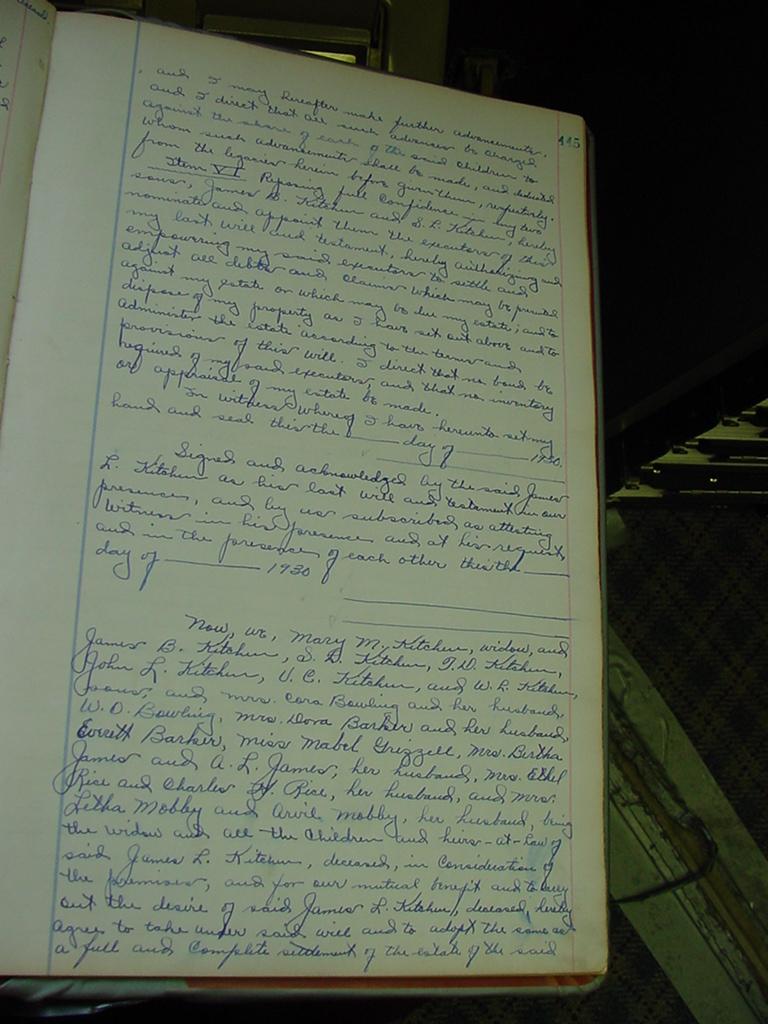 445
and I may hereafter make further advancements,
and I direct that all such advances be charged
against the share of each of the said children to
whom such advancements shall be made, and deducted
from the legacies herein before given them, respectively.
Item VI Reposing full confidence in my two
sons, James B. Kitchen and S. L. Kitchen, hereby
nominate and appoint them the executors of this
my last will and testament, hereby authorizing and
empowering my said executors to settle and
adjust all debts and claims which may be presented
against my estate or which may be due my estate; and to
dispose of my property as I have set out above and to
administer the estate according to the terms and
provisions of this will. I direct that no bond be
required of my said executors, and that no inventory
or appraisal of my estate be made.
In witness whereof I have hereunto set my
hand and seal this the ____ day of ____ 1930.
Signed and acknowledged by the said, James
L. Kitchen as his last will and testament in our
presence, and by us subscribed as attesting
witness in his presence and at his request,
and in the presence of each other this the ____
day of ____ 1930
Now, we, Mary M. Kitchen, widow, and
James B. Kitchen, S. L. Kitchen, T. W. Kitchen,
John L. Kitchen, V. C. Kitchen, and W. L. Kitchen,
sons, and Mrs. Cora Bowling and her husband,
W. O. Bowling, Mrs. Dora Barker and her husband,
Everett Barker, Miss Mabel Grizzell, Mrs. Birtha
James and A. L. James, her husband, Mrs. Ethel
Rice and Charles H. Rice, her husband, and Mrs.
Letha Mobley and Arvil Mobby, her husband, being
the widow and all the Children and heirs-at-law of
said James L. Kitchen, deceased, in Consideration of
the premises, and for our mutual benefit and to carry
out the desire of said James L. Kitchen, deceased, hereby
agree to take under said will and to adopt the same as
a full and Complete settlement of the estate of the said